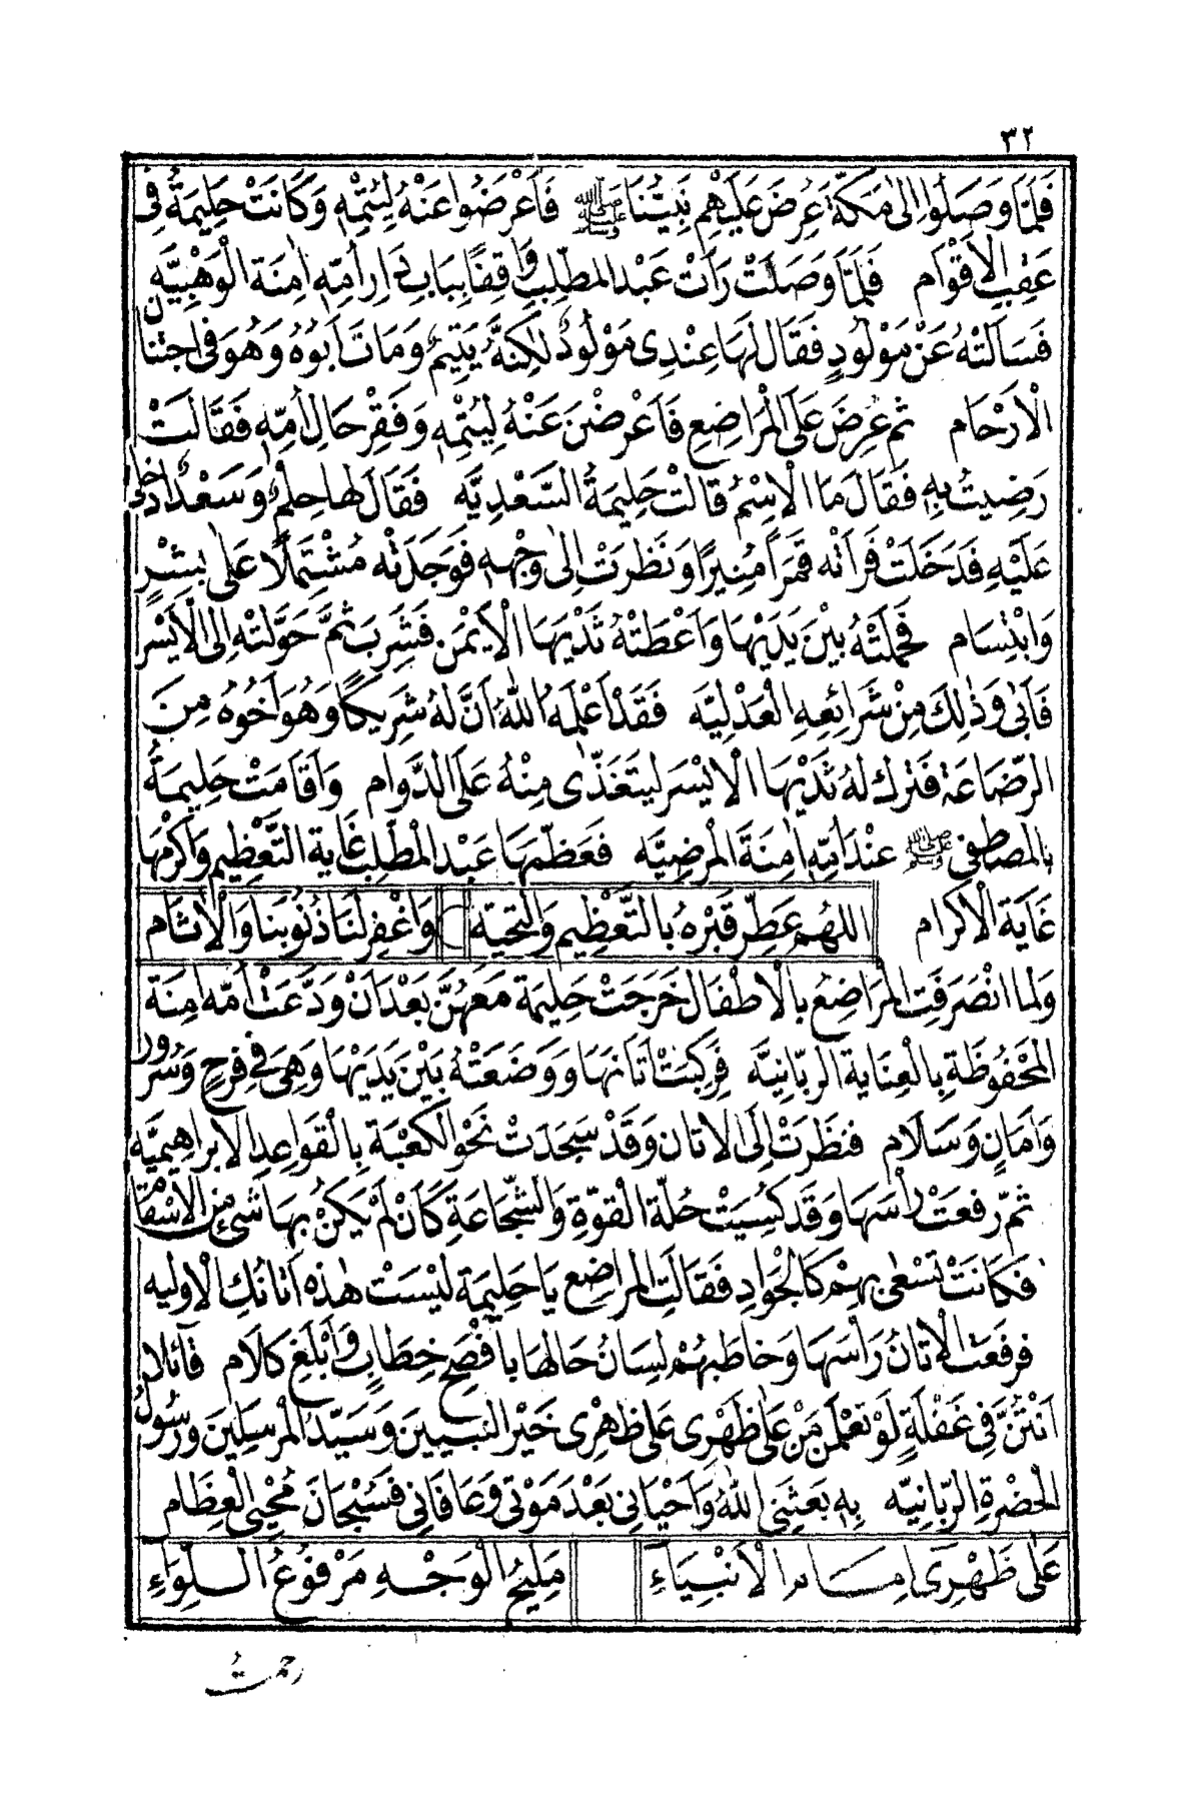 ٣٢
فَلَمَّا وَصَلُوْا اِلٰى مَكَّةَ عُرِضَ عَلَيْهِمْ نَبِيُّنَا ﷺ فَاَعْرَضُوْا عَنْهُ لِيُتْمِهٖ وَكَانَتْ حَلِيْمَةُ فِىْ
عَقِبِ الْاَقْوَام فَلَمَّا وَصَلَتْ رَاَتْ عَبْدَ الْمُطَّلِبِ وَاقِفًا بِبَابِ دَارِ اُمِّهٖ اٰمِنَةَ الْوَهْبِيَّهِ
فَسَاَلَتْهُ عَنْ مَوْلُوْدٍ فَقَالَ لَهَا عِنْدِىْ مَوْلُوْدٌ لٰكِنَّهٗ يَتِيْمٌ وَمَاتَ اَبُوْهُ وَهُوَ فِى اجْتِنَانِ
الْاَرْحَام ثُمَّ عُرِضَ عَلَى الْمَرَاضِعِ فَاَعْرَضْنَ عَنْهُ لِيُتْمِهٖ وَفَقْرِ حَالِ اُمِّهٖ فَقَالَتْ
رَضِيْتُ بِهٖ فَقَالَ مَا الْاِسْمُ قَالَتْ حَلِيْمَةُ السَّعْدِيَّه فَقَالَ لَهَا حِلْمٌ وَسَعْدٌ ادْخُلِىْ
عَلَيْهِ فَدَخَلَتْ فَرَاَتْهُ قَمَرًا مُنِيْرًا وَنَظَرَتْ اِلٰى وَجْهِهٖ فَوَجَدَتْهُ مُشْتَمِلًا عَلٰى بِشْرٍ
وَابْتِسَام فَحَمَلَتْهُ بَيْنَ يَدَيْهَا وَاَعْطَتْهُ ثَدْيَهَا الْاَيْمَنَ فَشَرِبَ ثُمَّ حَوَّلَتْهُ اِلَى الْاَيْسَرِ
فَاَبٰى وَذٰلِكَ مِنْ شَرَائِعِهِ الْعَدْلِيَّه فَقَدْ اَعْلَمَهُ اللّٰهُ اَنَّ لَهٗ شَرِيْكًا وَهُوَ اَخُوْهُ مِنَ
الرَّضَاعَة فَتَرَكَ لَهٗ ثَدْيَهَا الْاَيْسَر لِيَتَغَذّٰى مِنْهُ عَلَى الدَّوَام وَاَقَامَتْ حَلِيْمَةُ
بِالْمُصْطَفٰى ﷺ عِنْدَ اُمِّهٖ اٰمِنَةَ الْمَرْضِيَّه فَعَظَّمَهَا عَبْدُ الْمُطَّلِبِ غَايَةَ التَّعْظِيْمِ وَاَكْرَمَهَا
غَايَةَ الْاَكْرَام اَللّٰهُمَّ عَطِّرْ قَبْرَهٗ بِالتَّعْظِيْمِ وَالتَّحِيَّة وَاغْفِرْ لَنَا ذُنُوْبَنَا وَالْاٰثَام
وَلَمَّا انْصَرَفَتِ الْمَرَاضِعُ بِالْاَطْفَالِ خَرَجَتْ حَلِيْمَةُ مَعَهُنَّ بَعْدَ اَنْ وَدَّعَتْ اُمَّهٗ اٰمِنَةَ
الْمَحْفُوْظَةَ بِالْعِنَايَةِ الرَّبَّانِيَّه فَرَكِبَتْ اَتَانَهَا وَوَضَعَتْهُ بَيْنَ يَدَيْهَا وَهِىَ فِىْ فَرَحٍ وَسُرُوْرٍ
وَاَمَانٍ وَسَلَام فَنَظَرَتْ اِلَى الْاَتَان وَقَدْ سَجَدَتْ نَحْوَ الْكَعْبَةِ بِالْقَوَاعِدِ الْاِبْرَاهِيْمِيَّه
ثُمَّ رَفَعَتْ رَاْسَهَا وَقَدْ كُسِيَتْ حُلَّةَ الْقُوَّةِ وَالشَّجَاعَةِ كَاَنْ لَمْ يَكُنْ بِهَا شَىْءٌ مِنَ الْاَسْقَام
فَكَانَتْ تَسْعٰى بِهِمْ كَالْجَوَادِ فَقَالَتِ الْمَرَاضِع يَا حَلِيْمَة لَيْسَتْ هٰذِهٖ اَتَانُكِ الْاَوَّلِيه
فَرَفَعَتِ الْاَتَانُ رَاْسَهَا وَخَاطَبَتْهُمْ لِسَانُ حَالِهَا بِاَفْصَحِ خِطَابٍ وَاَبْلَغِ كَلَام قَائِلًا
اَنْتُنَّ فِىْ غَفْلَةٍ لَوْ تَعْلَمْنَ مَنْ عَلٰى ظَهْرِىْ عَلٰى ظَهْرِىْ خَيْرُ النَّبِيِّيْنَ وَسَيِّدُ الْمُرْسَلِيْنَ وَرَسُوْلُ
الْحَضْرَةِ الرَّبَّانِيَّه بِهٖ بَعَثَنِىَ اللّٰهُ وَاَحْيَانِىْ بَعْدَ مَوْتِىْ وَعَافَانِىْ فَسُبْحَانَ مُحْيِى الْعِظَام
عَلٰى ظَهْرِىْ اِمَامُ الْاَنْبِيَاءِ مَلِيْحُ الْوَجْهِ مَرْفُوْعُ اللِّوَاءِ
رحمتُ